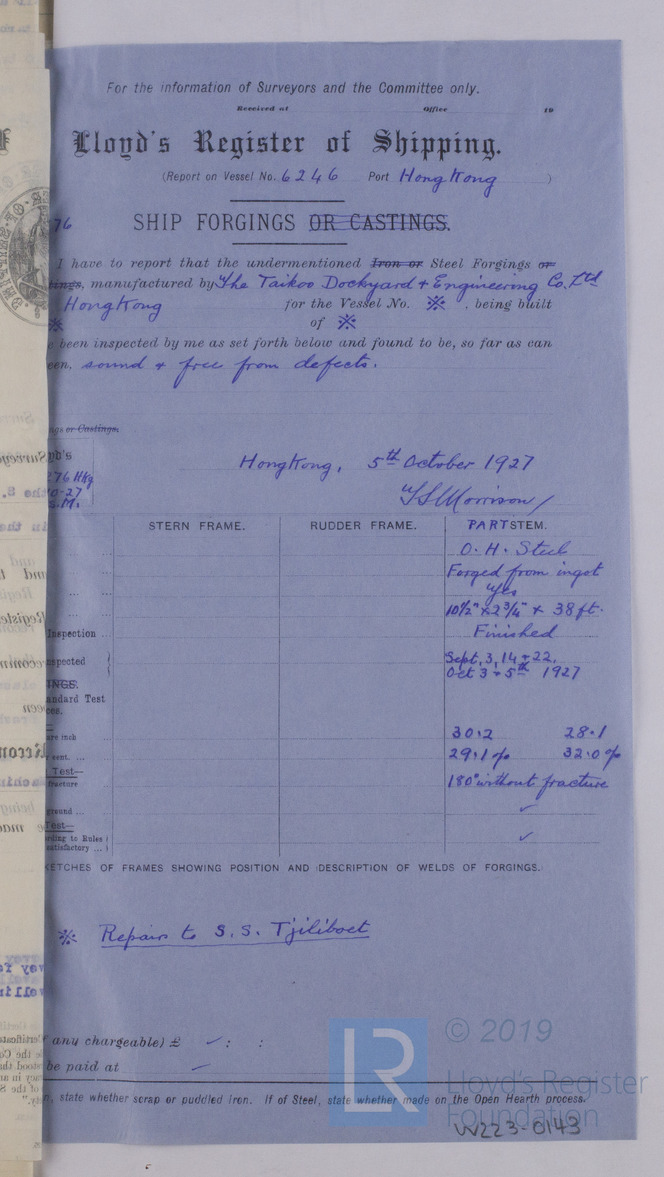 For the information of Surveyors and the Committee only.
Received at Office 19
Lloyd's Register of Shipping.
(Report on Vessel No. 6246 Port Hong Kong )
76
SHIP FORGINGS OR CASTINGS.
I have to report that the undermentioned Iron or Steel Forgings or
ings, manufactured by The Taikoo Dockyard & Engineering Co. Ltd
HongKong for the Vessel No. ※ , being built
※ of ※
e been inspected by me as set forth below and found to be, so far as can
een, sound & free from defects.
ngs or Castings.
yd's
76 HKg
0-27
S.M.
HongKong, 5th October 1927
Morrison
STERN FRAME. RUDDER FRAME. PART STEM.
O. H. Steel
Forged from ingot
Yes
10½" x 2¾" x 38 ft.
Inspection Finished
nspected Sept. 3, 14 & 22.
Oct 3 & 5th 1927
INGS.
andard Test
ces.
are inch 30.2 28.1
r cent. ... 29.1% 32.0%
Test—
fracture 180° without fracture
ground ... ✓
Test—
rding to Rules
satisfactory ... ✓
KETCHES OF FRAMES SHOWING POSITION AND DESCRIPTION OF WELDS OF FORGINGS.
※ Repairs to S.S. Tjiliboet
any chargeable) £ ✓ : :
be paid at ✓
n, state whether scrap or puddled iron. If of Steel, state whether made on the Open Hearth process.
© 2019
LR
Lloyd's Register
Foundation
W223-0143